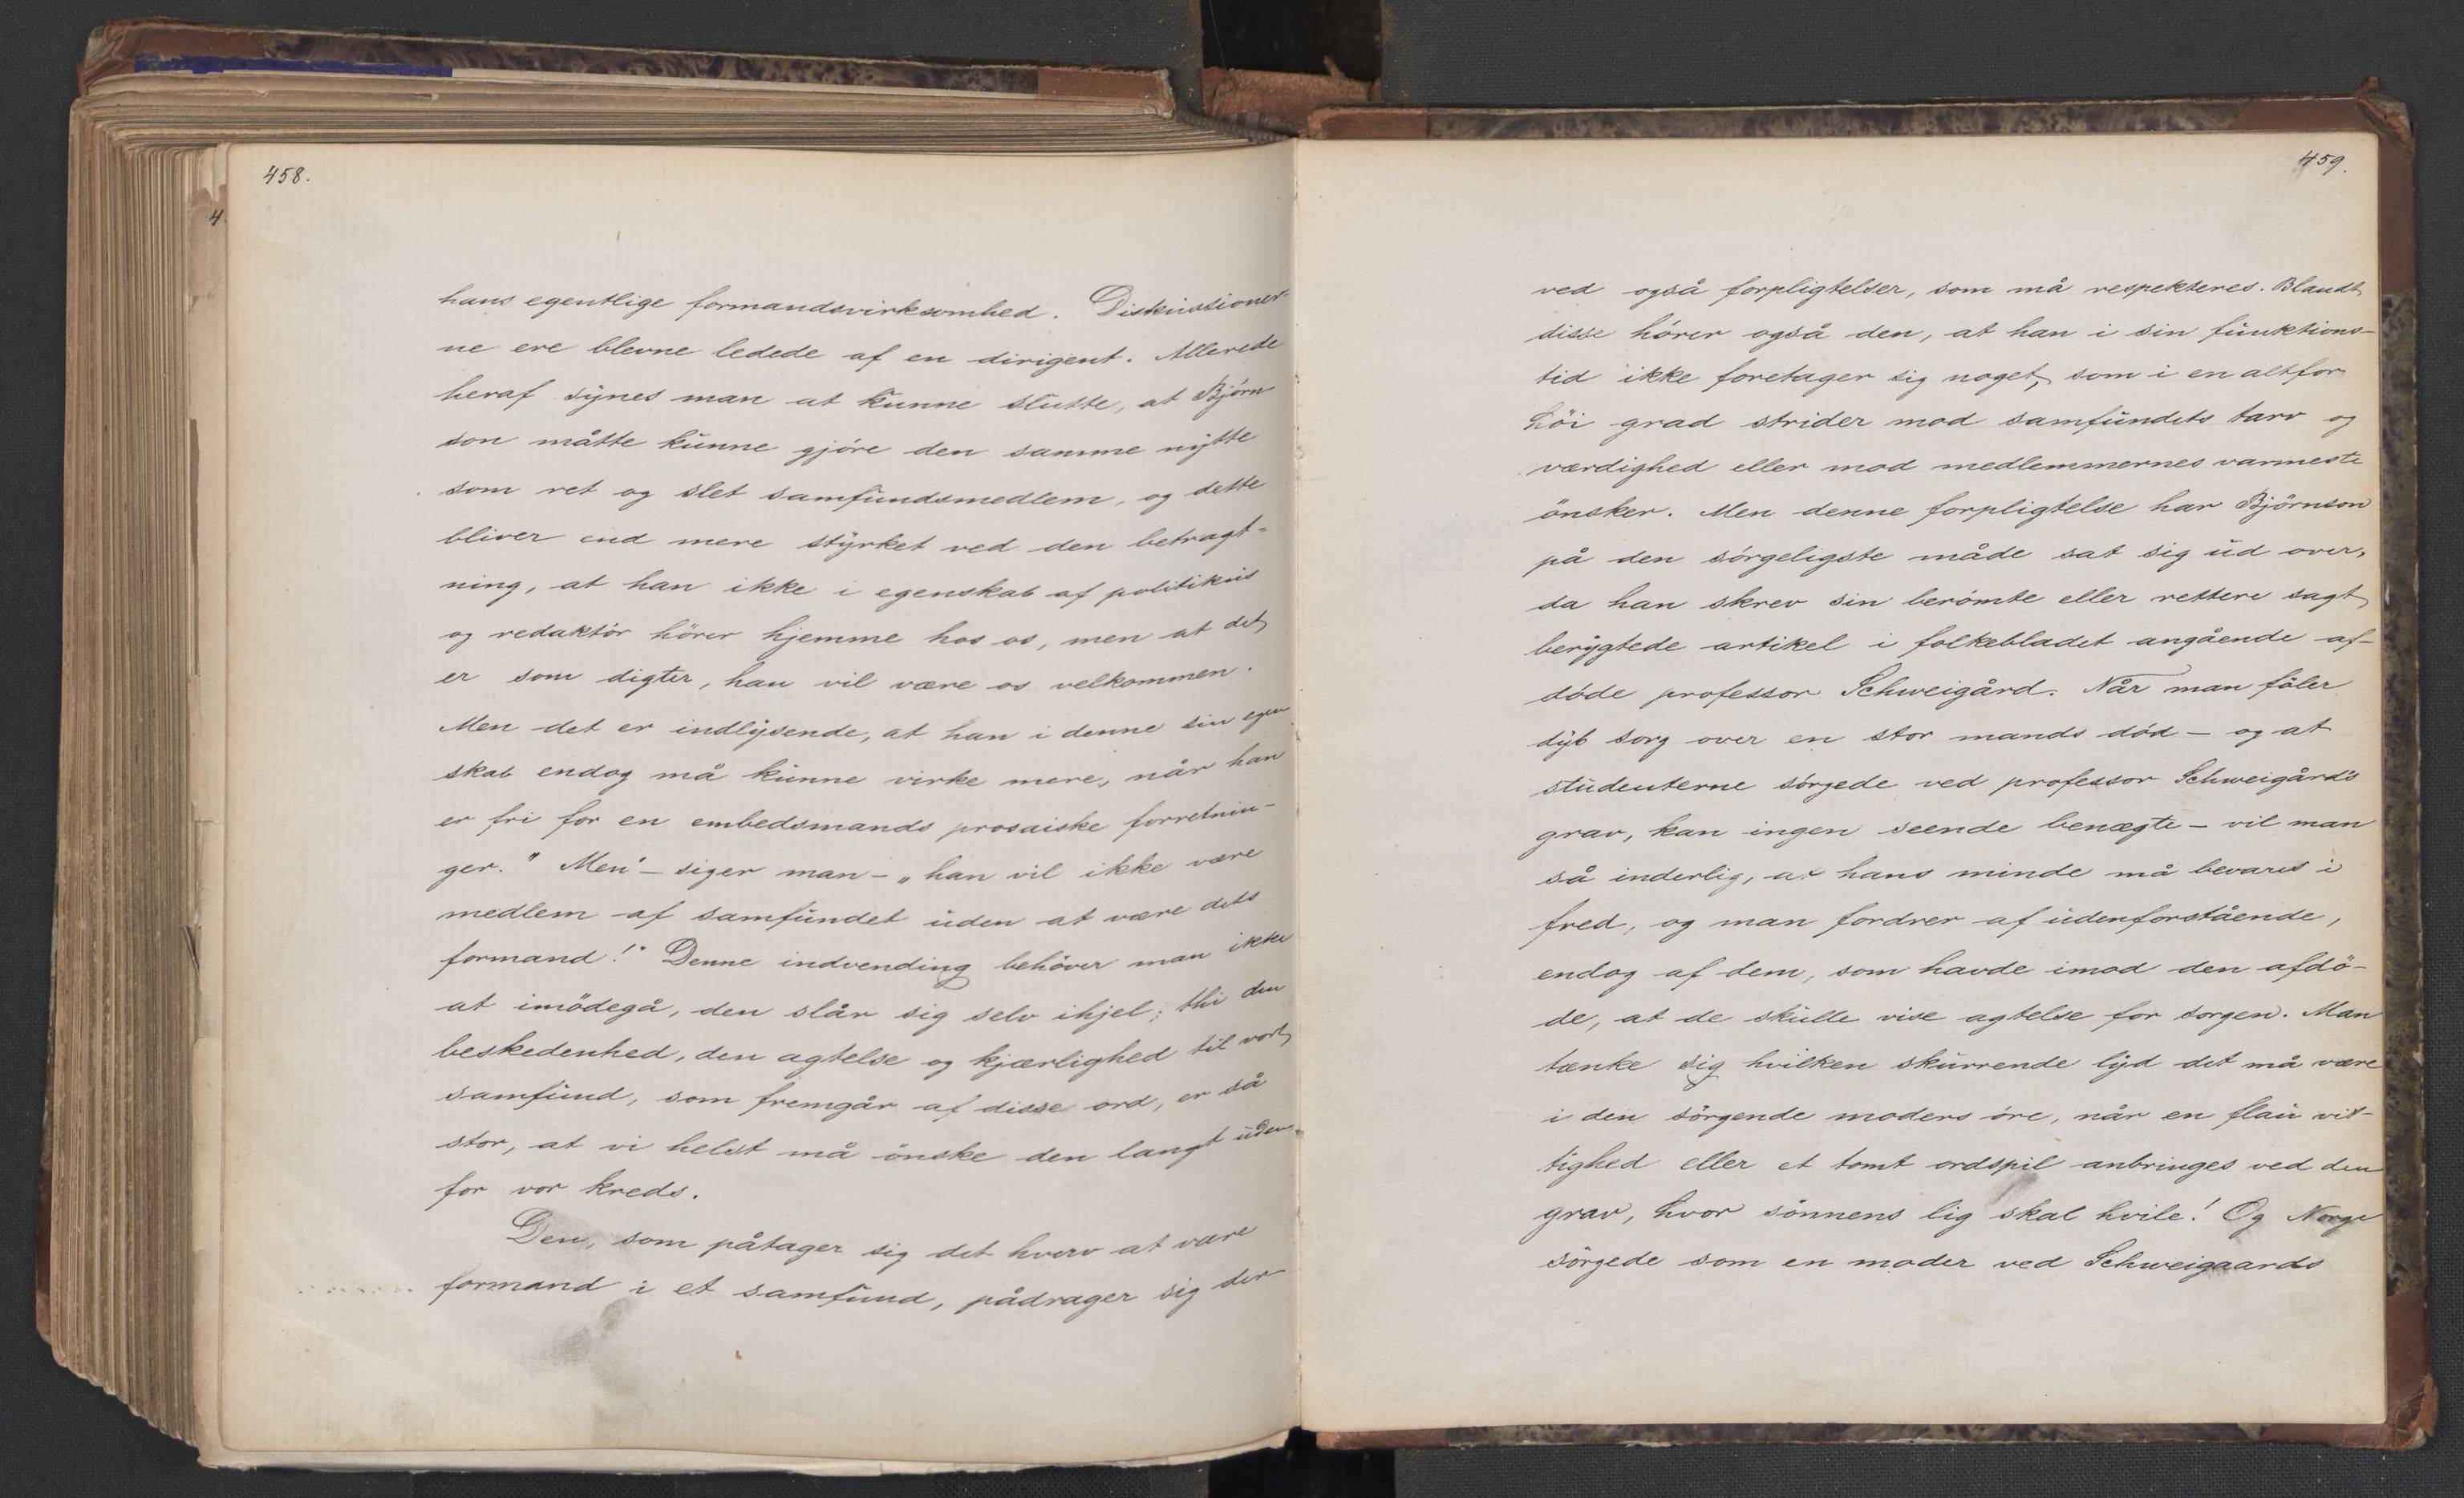 458.
4.
hans egentlige formandsvirksomhed. Diskussioner-
ne ere blevne ledede af en dirigent. Allerede
heraf synes man at kunne slutte, at Björn
son måtte kunne gjöre den samme nytte
som ret og slet samfundsmedlem, og dette
bliver end mere styrket ved den betragt-
ning, at han ikke i egenskab af politikus
og redaktör hörer hjemme hos os, men at det
er som digter, han vil være os velkommen.
Men det er indlysende, at han i denne sin egen
skab endog må kunne virke mere, når han
er fri for en embedsmands prosaiske forretnin-
ger." Men' - siger man - „han vil ikke være
medlem af samfundet uden at være dets
formand!" Denne indvending behöver man ikke
at imödegå, den slår sig selv ihjel; thi den
beskedenhed, den agtelse og kjærlighed til vort
samfund, som fremgår af disse ord, er så
stor, at vi helst må önske den langt uden-
for vor kreds.
Den, som påtager sig det hverv at være
formand i et samfund, pådrager sig der
459.
ved også forpligtelser, som må respekteres. Blandt
disse hörer også den, at han i sin funktions-
tid ikke foretager sig noget, som i en altfor
höi grad strider mod samfundets tarv og
værdighed eller mod medlemmernes varmeste
önsker. Men denne forpligtelse har Björnson
på den sörgeligste måde sat sig ud over,
da han skrev sin berömte eller rettere sagt
berygtede artikel i folkebladet angående af-
döde professor Schweigård. Når man föler
dyb sorg over en stor mands död - og at
studenterne sörgede ved professor Schweigård's
grav, kan ingen seende benægte - vil man
så inderlig, at hans minde må bevares i
fred, og man fordrer af udenforstående,
endog af dem, som havde imod den afdö-
de, at de skulle vise agtelse for sorgen. Man
tænke sig hvilken skurrende lyd det må være
i den sörgende moders öre, når en flau vit-
tighed eller et tomt ordspil anbringes ved den
grav, hvor sönnens lig skal hvile! Og Norge
sörgede som en moder ved Schweigaards